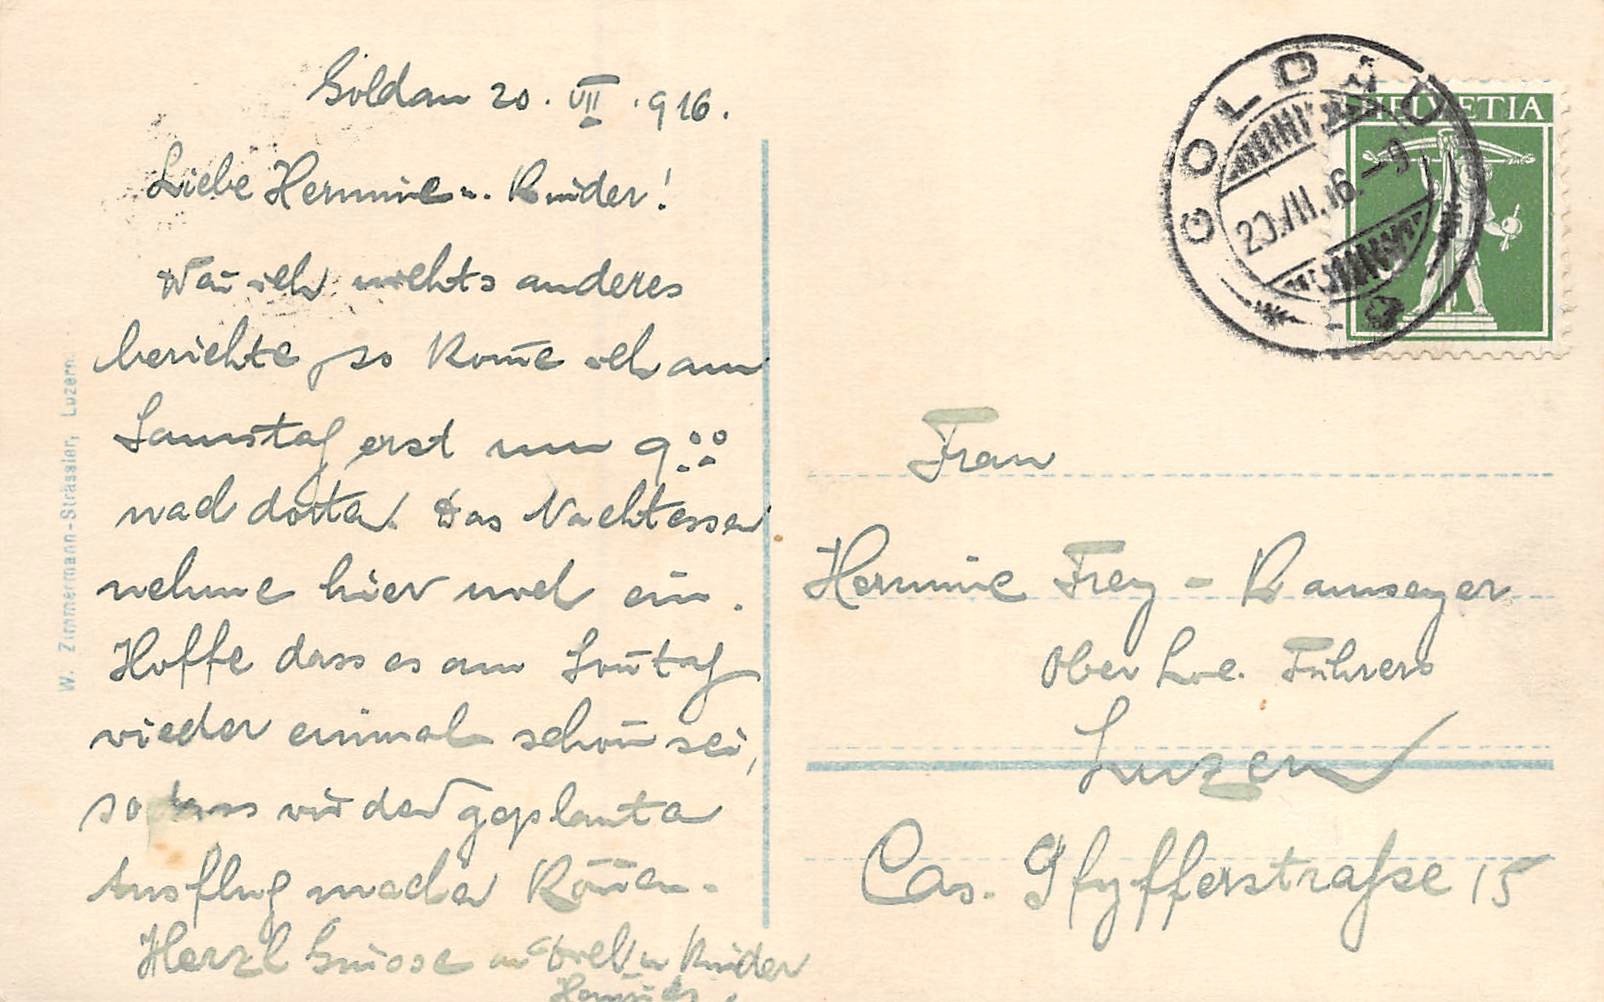 Goldau 20. VII. 916.
Liebe Hermine u. Kinder!
Wen̄ ich nichts anderes
berichte, so kom̄e ich am
Samstag erst um 9 00
nach dorten. Das Nachtessen
nehme hier noch ein.
Hoffe dass es am Son̄tag
wieder einmal schön sei,
so dass wir den geplanten
Ausflug machen kön̄en.
Herzl Grüsse an Dich u Kinder
W. Zimmermann-Strässler, Luzern.
GOLDAU
20.VII.16.-9
HELVETIA
Frau
Hermine Frey - Ramseyer
Ober Loc. Führers
Luzern
Cas. Pfyfferstraße 15